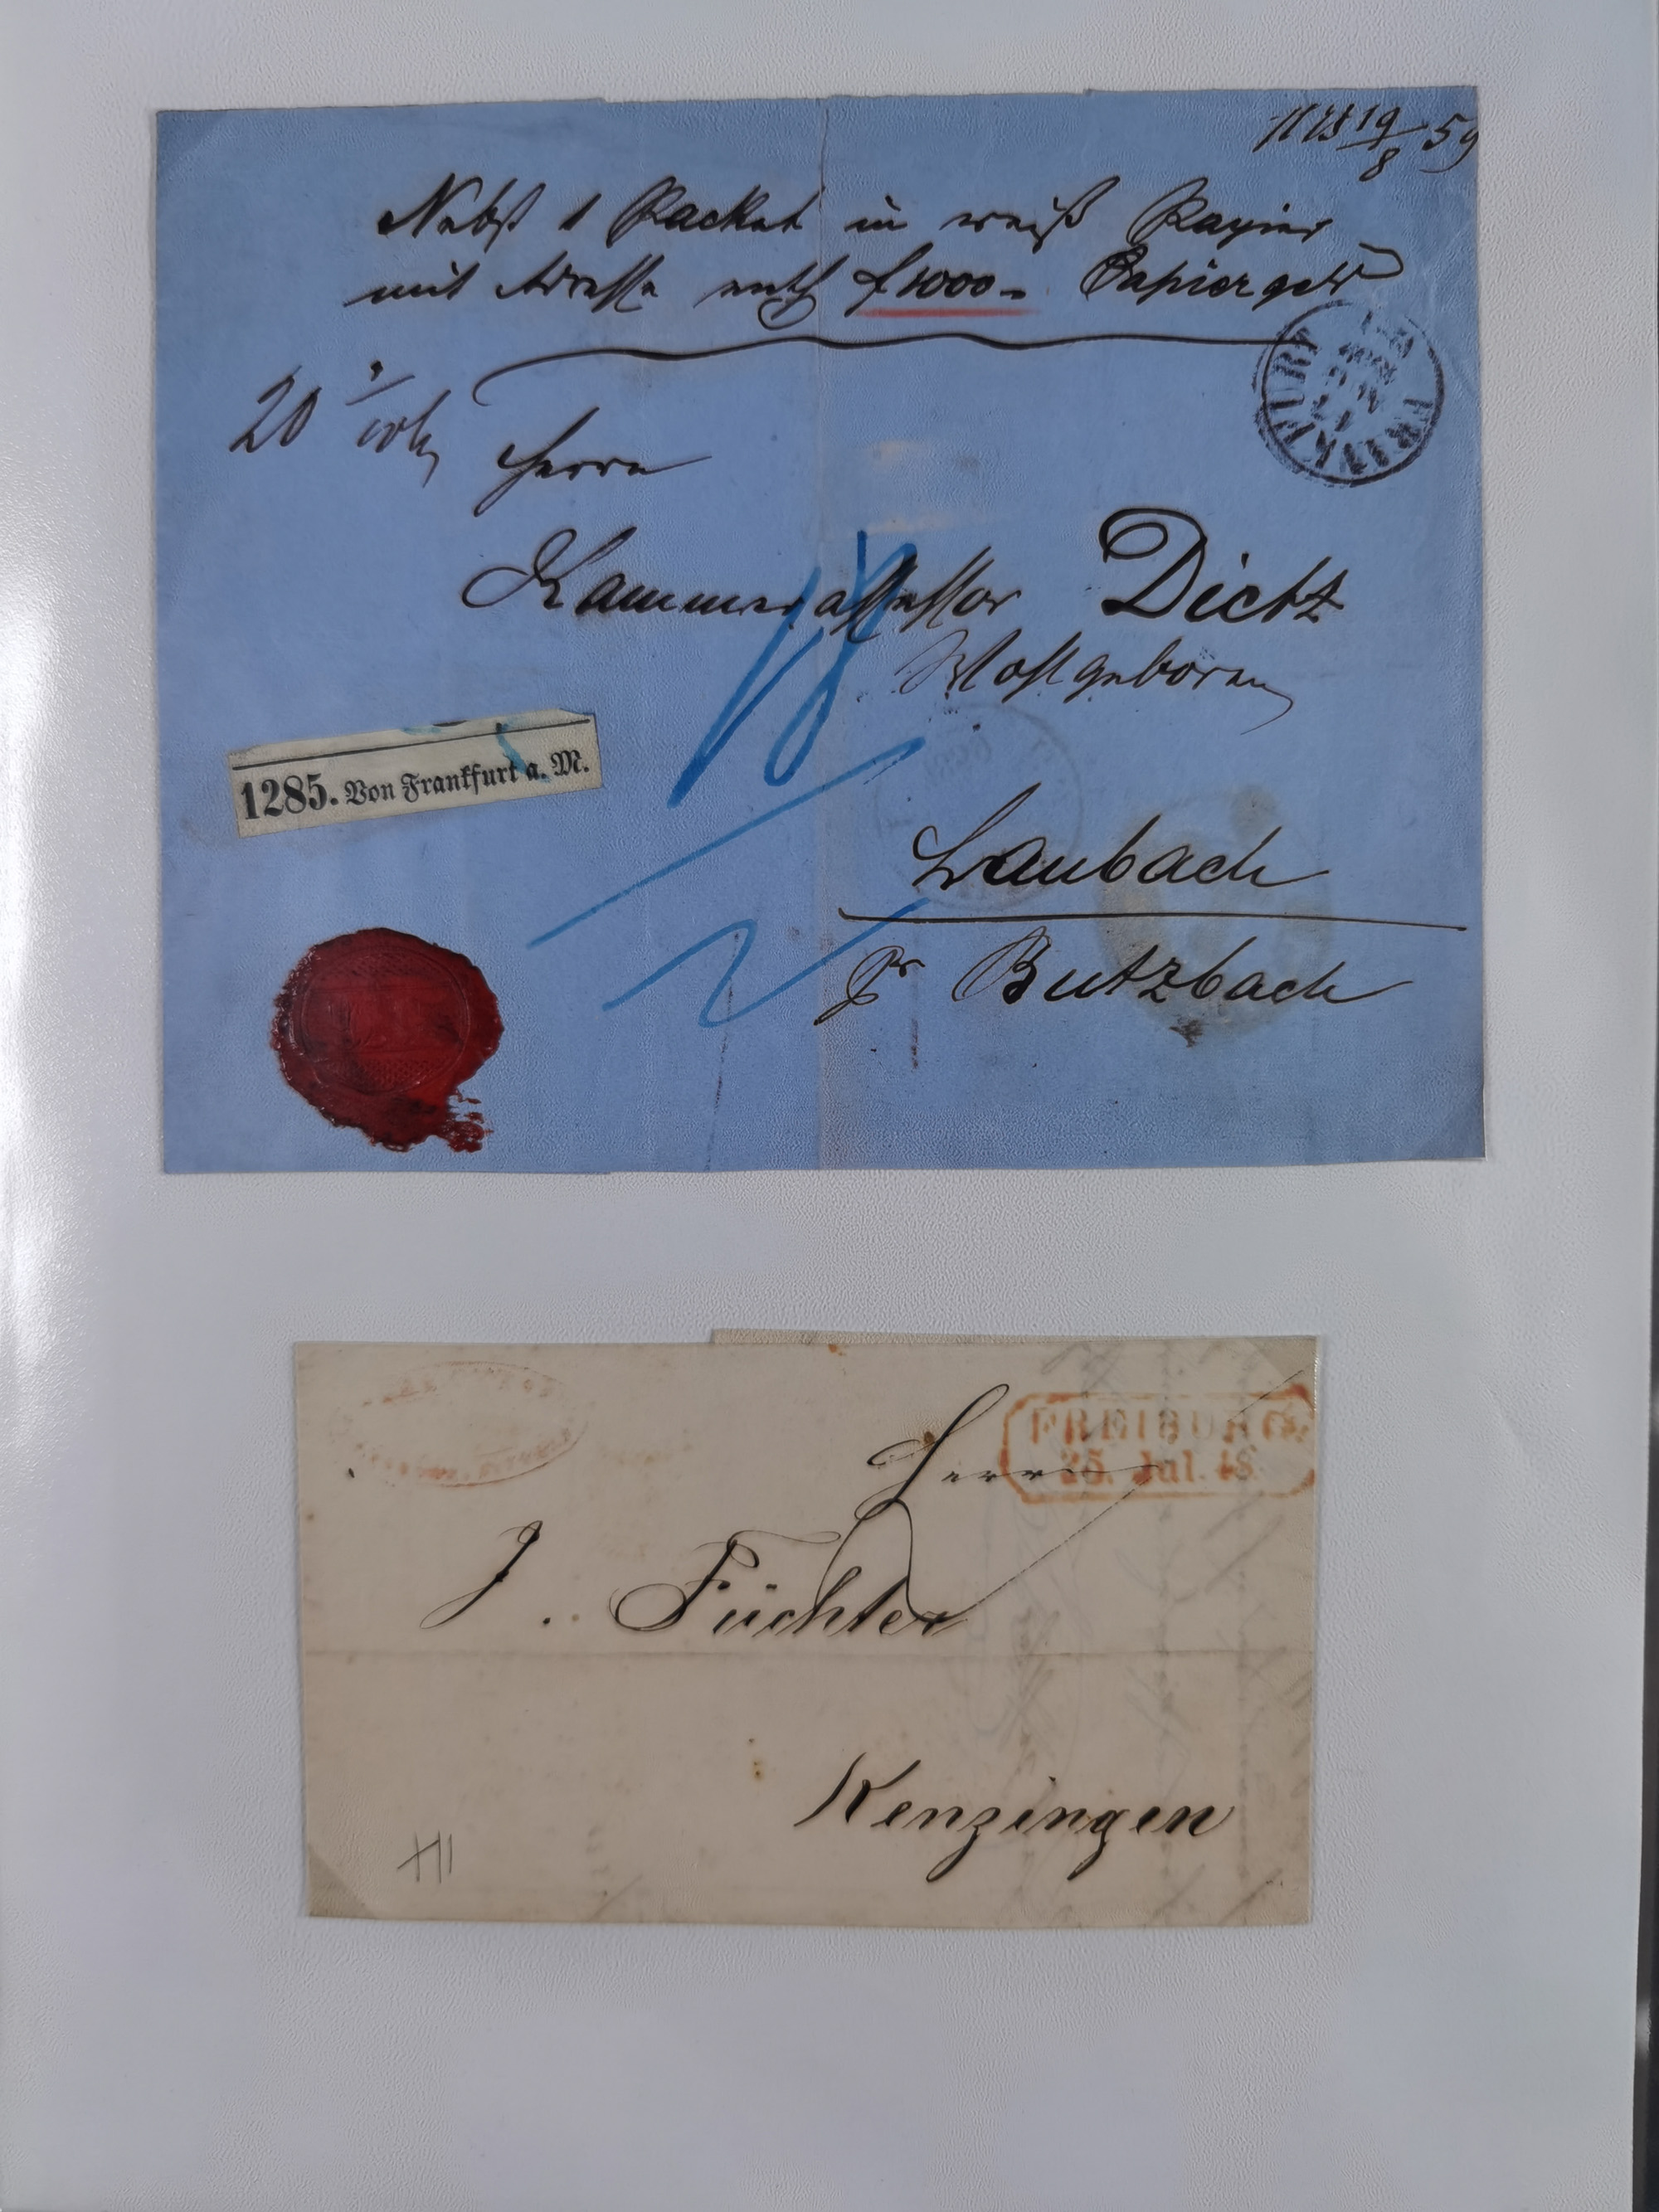 19/8 59
Nebst 1 Packet in weiß Papier
mit Adresse enth f 1000 - Papiergeld
20
FRANKFURT
Herrn
Kammerassessor Dietz
Wohlgeboren
1285. Von Frankfurt a. M.
Laubach
pr Butzbach
FREIBURG
25. Jul. 48
Herrn
J. Füchter
Kenzingen